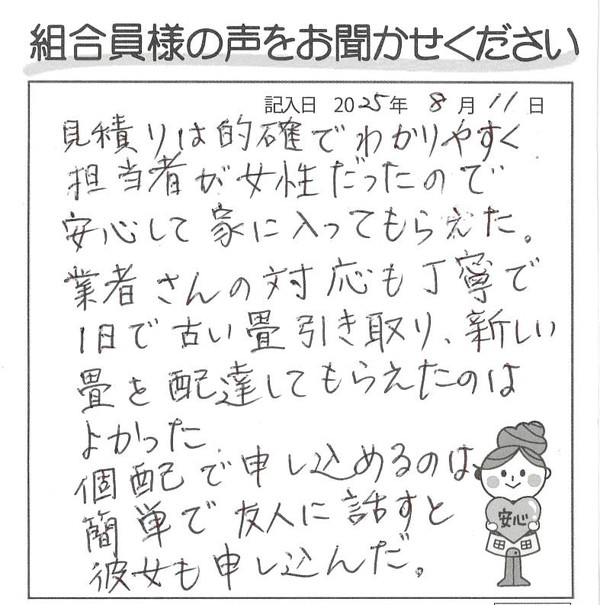 組合員様の声をお聞かせください
記入日 2025年 8月 11日
見積りは的確でわかりやすく
担当者が女性だったので
安心して家に入ってもらえた。
業者さんの対応も丁寧で
1日で古い畳引き取り、新しい
畳を配達してもらえたのは
よかった。
個配で申し込めるのは、
簡単で友人に話すと
彼女も申し込んだ。
安心